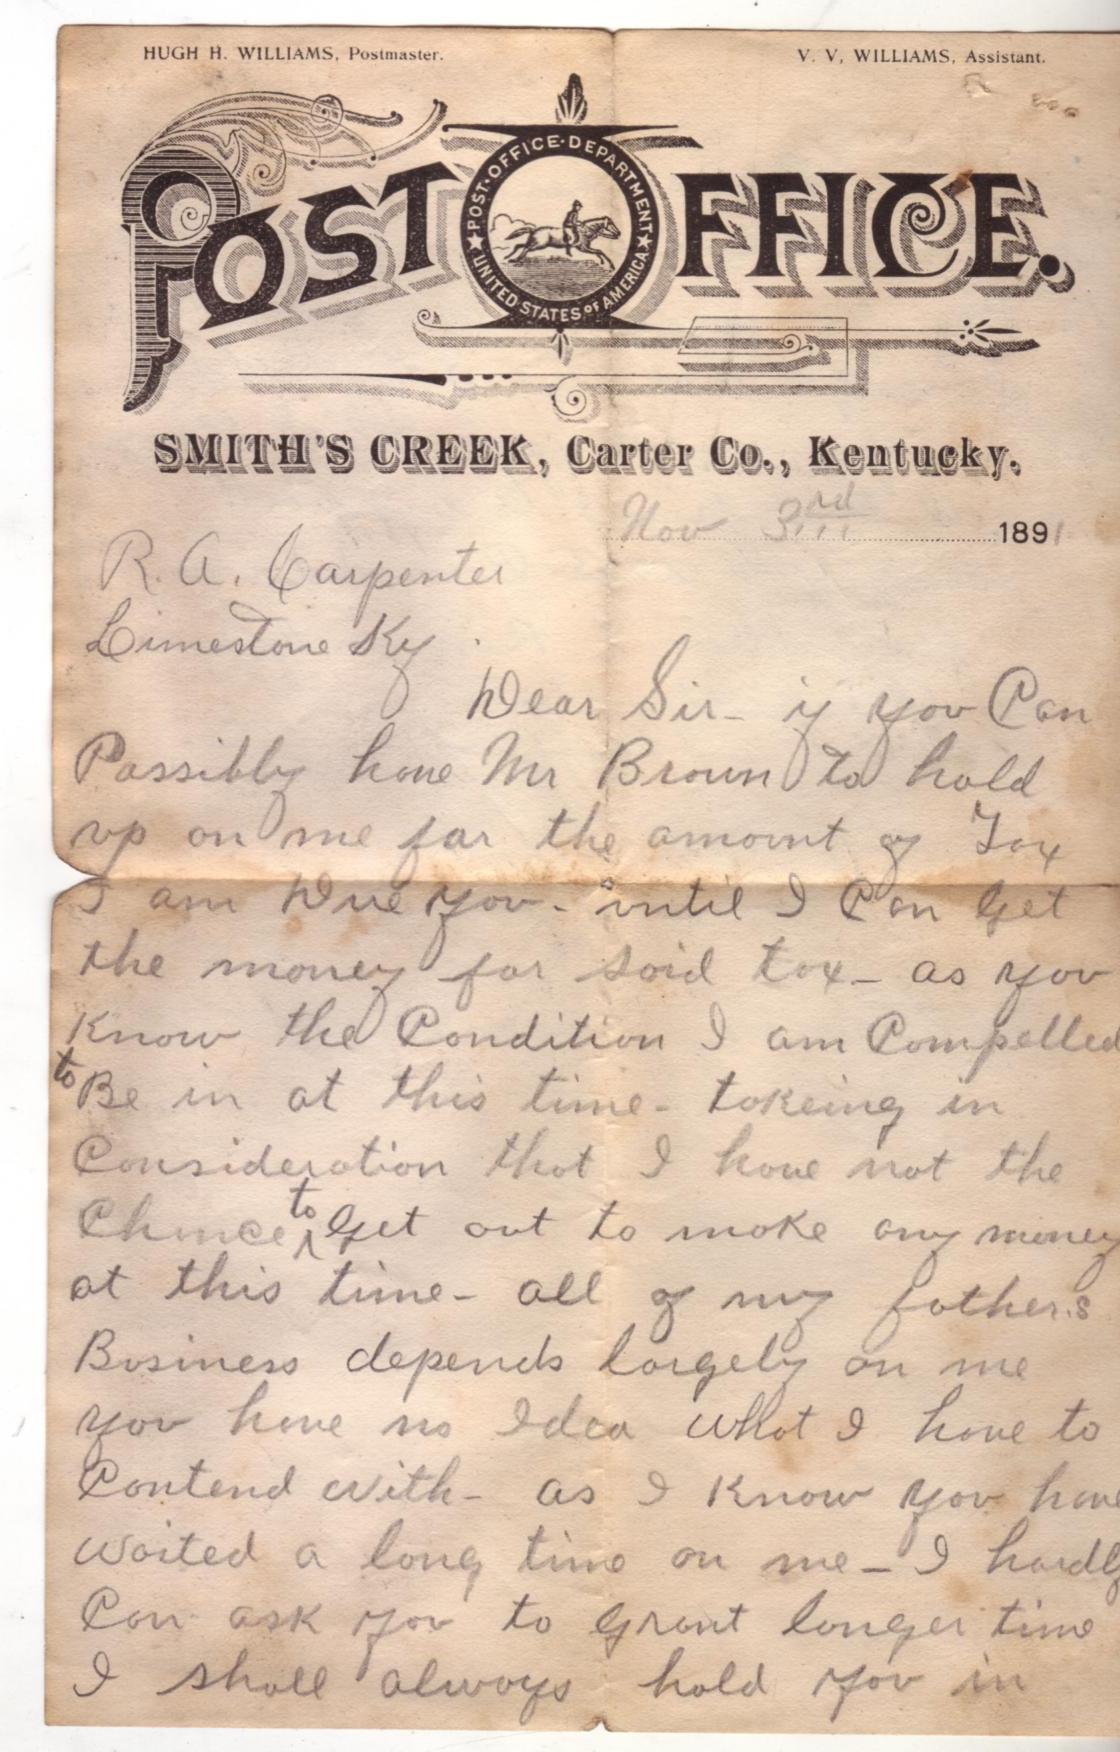 HUGH H. WILLIAMS, Postmaster. V. V, WILLIAMS, Assistant.
POST OFFICE.
POST·OFFICE·DEPARTMENT
UNITED STATES OF AMERICA
SMITH'S CREEK, Carter Co., Kentucky.
Nov 3rd 1891
R. A. Carpenter
Limestone Ky.
Dear Sir - if you Can
Possibly have Mr Brown to hold
up on me for the amount of Tax
I am Due you - until I Can Get
the money for said tax - as you
Know the Condition I am Compelled
to Be in at this time - takeing in
Consideration that I have not the
Chance to Get out to make any money
at this time - all of my father.s
Business depends largely on me
you have no Idea what I have to
Contend with - as I Know you have
waited a long time on me - I hardly
Can ask you to Grant longer time
I shall always hold you in